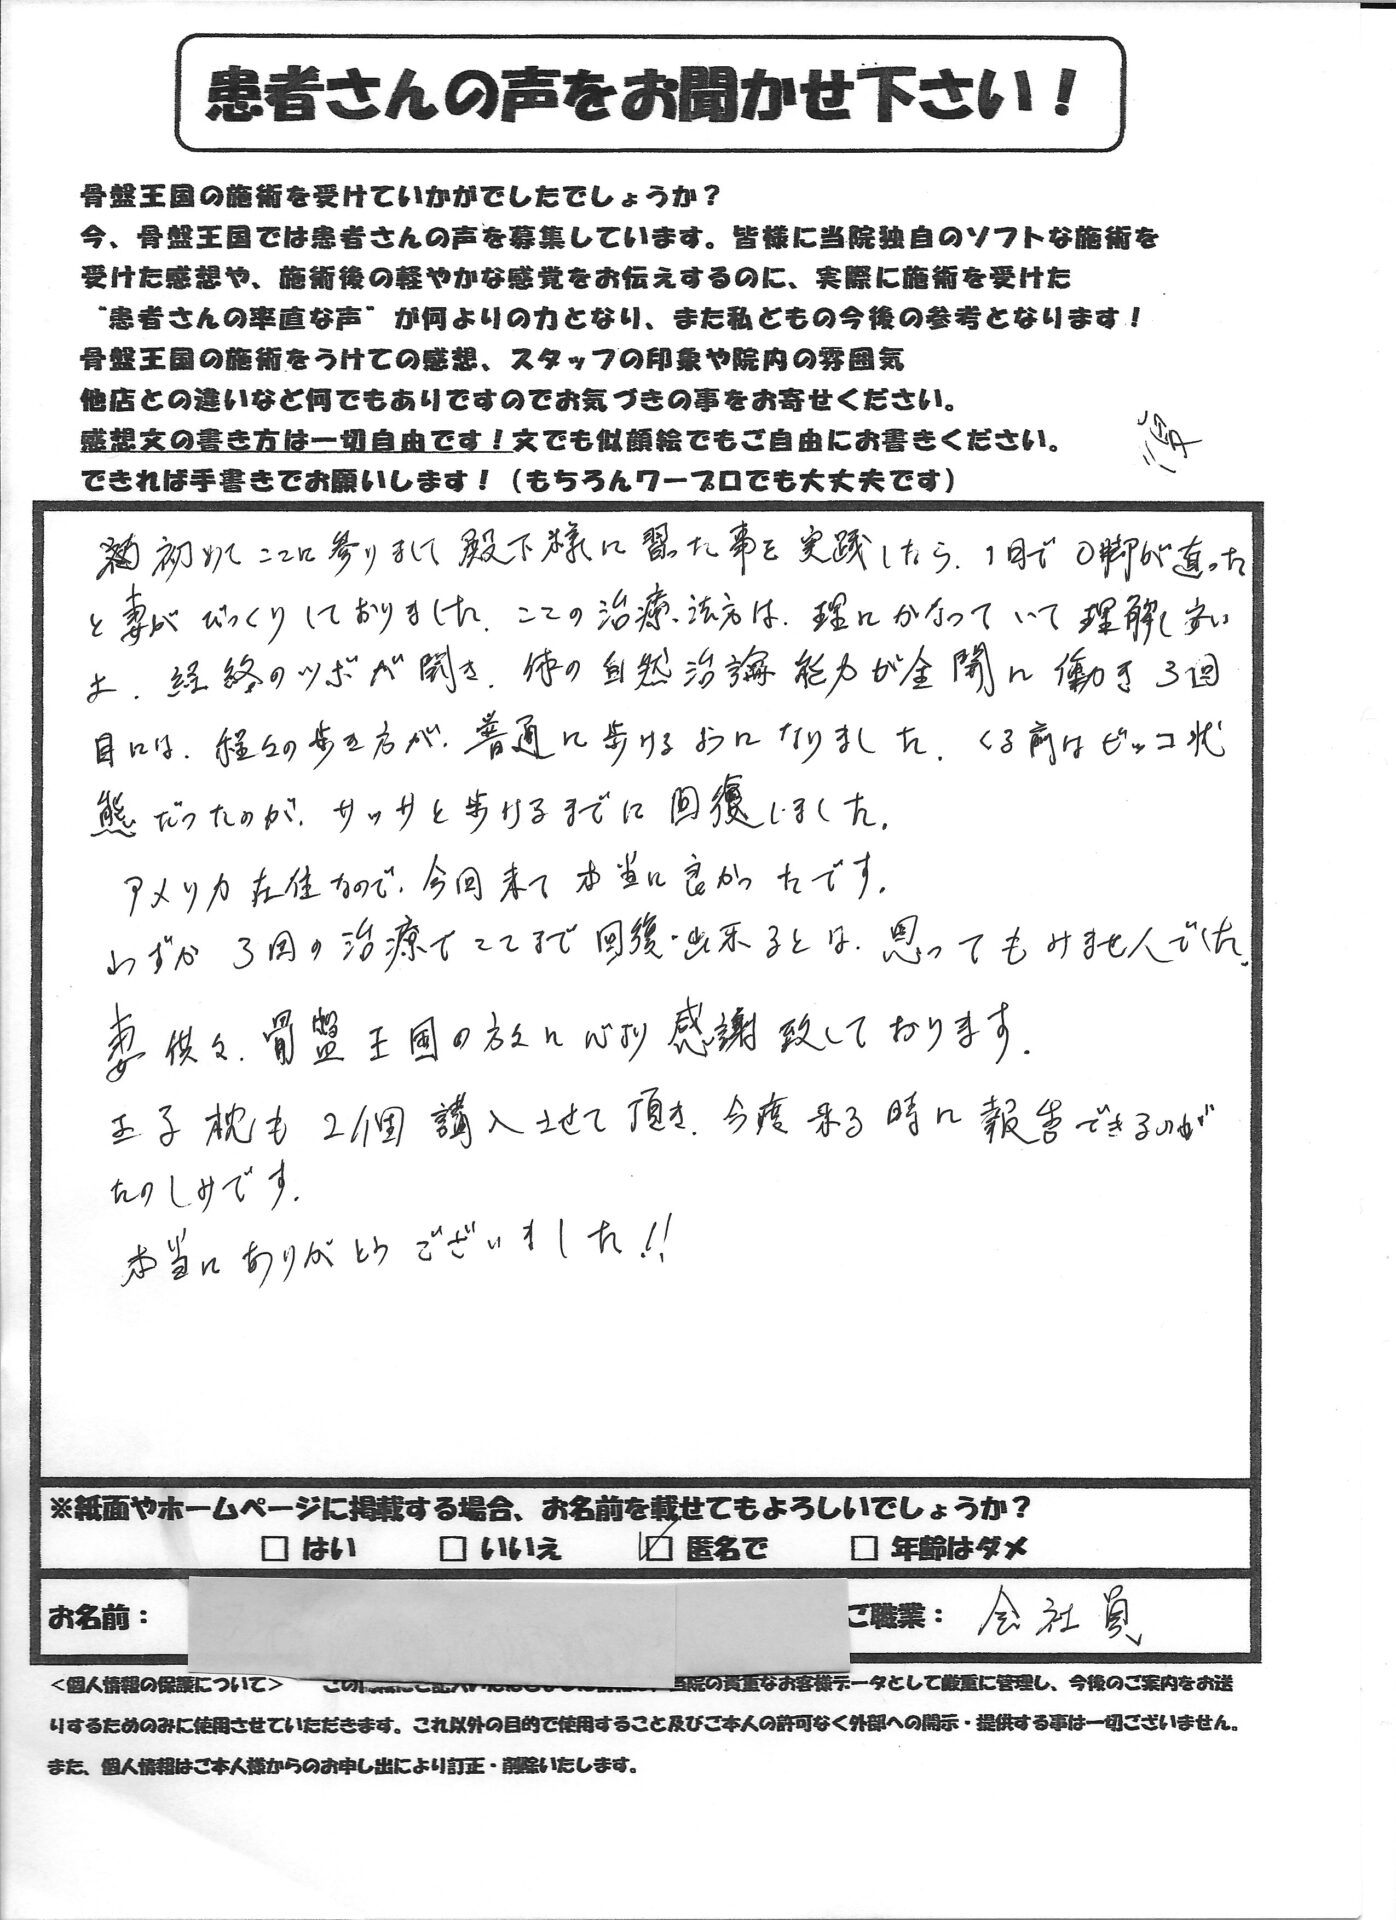 患者さんの声をお聞かせ下さい！
骨盤王国の施術を受けていかがでしたでしょうか？
今、骨盤王国では患者さんの声を募集しています。皆様に当院独自のソフトな施術を
受けた感想や、施術後の軽やかな感覚をお伝えするのに、実際に施術を受けた
"患者さんの率直な声"が何よりの力となり、また私どもの今後の参考となります！
骨盤王国の施術をうけての感想、スタッフの印象や院内の雰囲気
他店との違いなど何でもありですのでお気づきの事をお寄せください。
感想文の書き方は一切自由です！文でも似顔絵でもご自由にお書きください。
できれば手書きでお願いします！（もちろんワープロでも大丈夫です）
初めてここに参りまして殿下様に習った事を実践したら、1日でO脚が直った
と妻がびっくりしておりました。ここの治療、法方は、理にかなっていて理解し安い
。経絡のツボが開き、体の自然治論能力が全開に働き3回
目には、軽々の歩き方が、普通に歩けるようになりました。くる前はビッコ状
熊だったのが、サッサと歩けるまでに回復しました。
アメリカ在住なので、今回来て本当に良かったです。
わずか3回の治療でここまで回復出来るとは、思ってもみませんでした。
妻供々、骨盤王国の方々に心より感謝致しております。
王子枕も2個講入させて頂き、今度来る時に報告できるのが
たのしみです。
本当にありがとうございました!!
※紙面やホームページに掲載する場合、お名前を載せてもよろしいでしょうか？
□ はい □ いいえ ☑ 匿名で □ 年齢はダメ
お名前： ご職業： 会社員
＜個人情報の保護について＞ 当院の貴重なお客様データとして厳重に管理し、今後のご案内をお送
りするためのみに使用させていただきます。これ以外の目的で使用すること及びご本人の許可なく外部への開示・提供する事は一切ございません。
また、個人情報はご本人様からのお申し出により訂正・削除いたします。